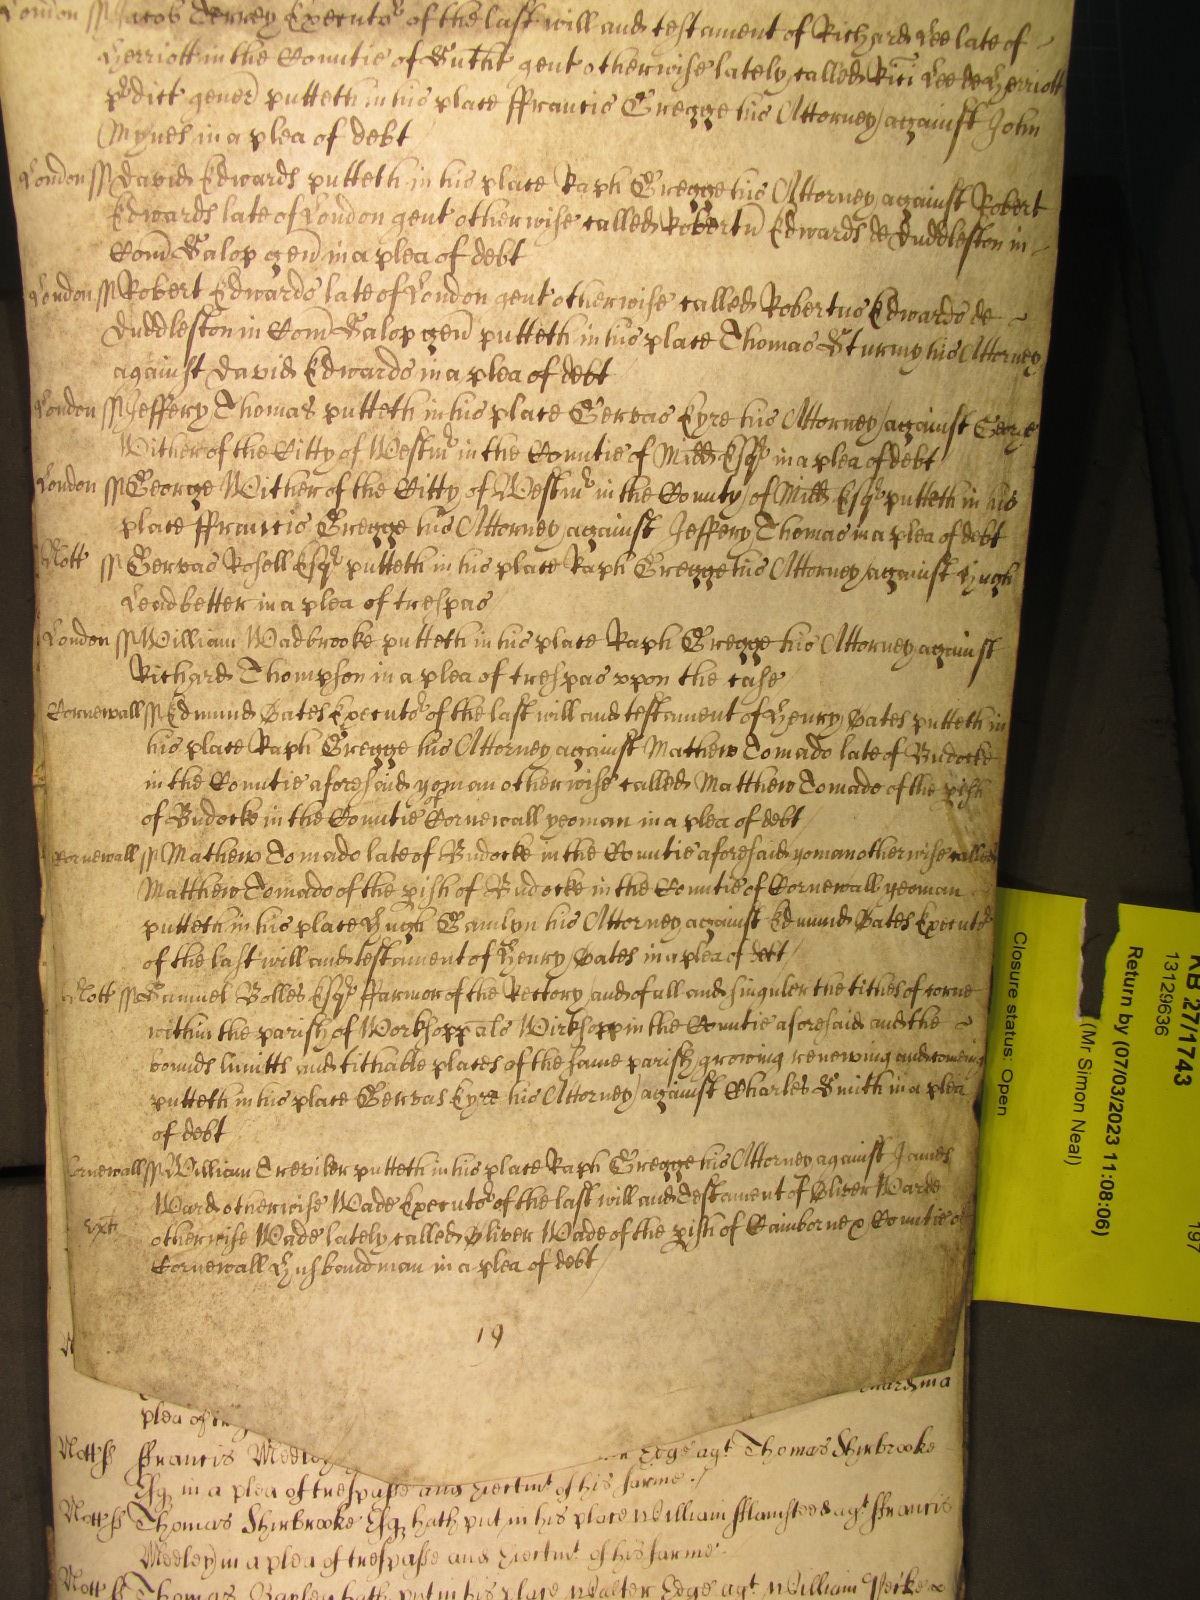 London ss Jacob Dersey Executor of the last will and testament of Richard Lee late of
Herriott in the Countie of Sutht gent otherwise lately called Rici Lee de Herriott
pdict gener putteth in his place ffrancis Gregge his Attorney against John
Mynes in a plea of debt
London ss David Edwards putteth in his place Raph Gregge his Attorney against Robert
Edwards late of London gent otherwise called Robertu Edwards de Duddleston in
Com Salop gen in a plea of debt
London ss Robert Edwards late of London gent otherwise called Robertus Edwards de
Duddleston in Com Salop gen putteth in his place Thomas Sturmy his Attorney
against David Edwards in a plea of debt
London ss Jeffery Thomas putteth in his place Gervas Eyre his Attorney against George
Wither of the Citty of Westmr in the Countie of Midd Esqr in a plea of debt
London ss George Wither of the Citty of Westmr in the County of Midd Esqr putteth in his
place ffrancis Gregge his Attorney against Jeffery Thomas in a plea of debt
Nott ss Gervas Rosell Esqr putteth in his place Raph Gregge his Attorney against Hugh
Leadbetter in a plea of trespas
London ss William Wadbrooke putteth in his place Raph Gregge his Attorney against
Richard Thompson in a plea of trespas vpon the case
Cornewall ss Edmund Bates Executor of the last will and testament of Henry Bates putteth in
his place Raph Gregge his Attorney against Mathew Tomado late of Budocke
in the Countie aforesaid yoman otherwise called Matthew Tomado of the pish
of Budocke in the Countie of Cornewall yeoman in a plea of debt
Cornewall ss Mathew Tomado late of Budocke in the Countie aforesaid yoman otherwise called
Matthew Tomado of the pish of Budocke in the Countie of Cornewall yeoman
putteth in his place Hugh Gamlyn his Attorney against Edmund Bates Executor
of the last will and testament of Henry Bates in a plea of debt
Nott ss Samuel Bolles Esqr ffarmor of the Rectory and of all and singuler the tithes of corne
within the parish of Worksopp als Wirksopp in the Countie aforesaid and the
bounds limitts and tithable places of the same parish growing renewing and comeing
putteth in his place Gervas Eyre his Attorney against Charles Smith in a plea
of debt
Cornewall ss William Treviler putteth in his place Raph Gregge his Attorney against James
Ward otherwise Wade Executor of the last will and Testament of Oliver Warde
otherwise Wade lately called Oliver Wade of the pish of Camborne Countie of
Cornewall Husbondman in a plea of debt
19
plea of
Nott ss ffrancis Medley Edge agt Thomas Shirbrooke
Esq in a plea of trespasse and Eiectmt of his farme
Nott ss Thomas Shirbrooke Esq hath put in his place William fflamsteed agt ffrancis
Medley in a plea of trespasse and Eiectmt of his farme
Nott ss Thomas hath put in his place Walter Edge agt William
KB 27/1743
13129636
Return by (07/03/2023 11:08:06)
(Mr Simon Neal)
Closure status: Open
197